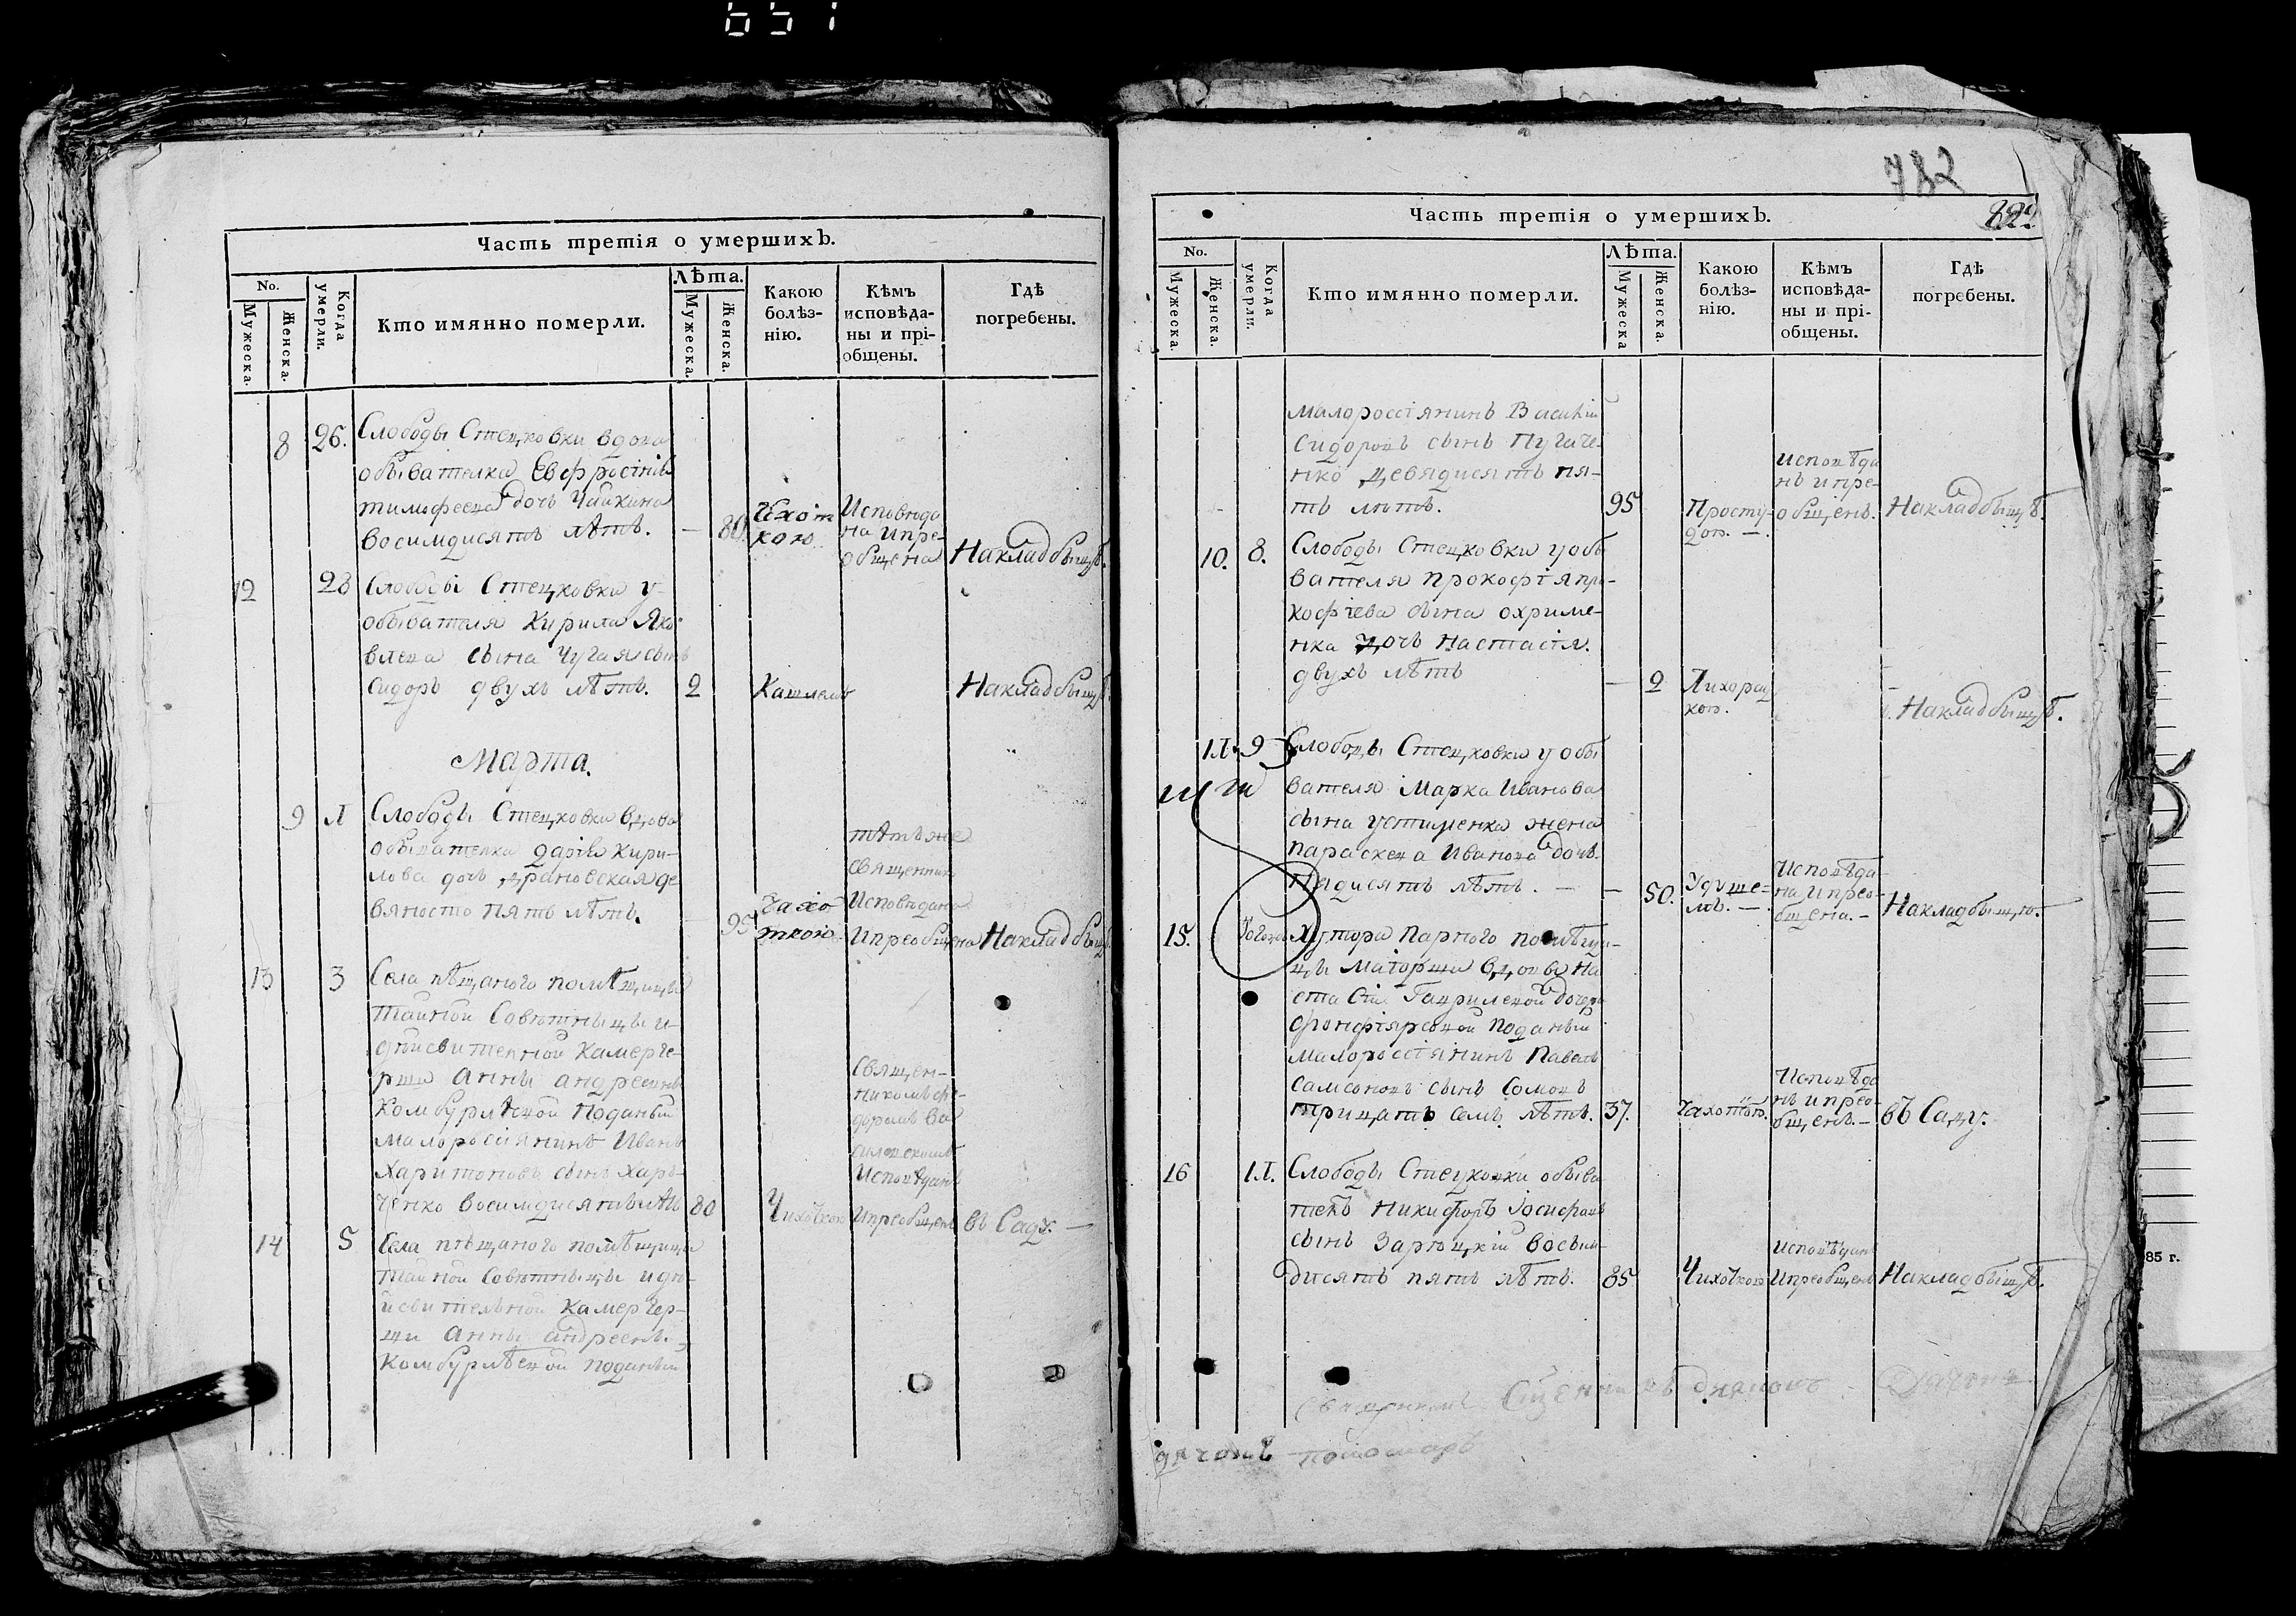 Часть третія о умершихъ.
No. Лѣта.
Мужеска. Женска. Когда умерли. Кто имянно померли. Мужеска. Женска. Какою болѣз-нію. Кѣмъ исповѣда-ны и прі-общены. Гдѣ погребены.
8 26. Слободы Стецковки вдова
обывателка Евфросінія
тимофеева дочь Чайкина
восимдисятъ лѣтъ. — 80. Чхот
кою Исповѣда
на и пре-
общена На кладбыщѣ.
12 28 Слободы Стецковки у
обывателя Кирила Яко
влева сына Чугая сынъ
Сидоръ двухъ лѣтъ. 2 Кашлемъ На кладбыщѣ
Марта.
9 1 Слободы Стецковки вдова
обывателка Дарія Кири-
лова дочь драновская де
вяносто пять лѣтъ. 95 Чахо
ткою
тѣмъ же
священник
Исповѣдана
и преобщена На кладбыщѣ
13 3 Села пѣщаного помѣщицы
Тайной Совѣтныцы и
дѣйсвителной Камерге-
рши Анны андреевны
Комбурлѣевой поданый
малоросіянинъ Иванъ
Харитоновъ сынъ Харь-
ченко восимдисятъ лѣтъ 80 Чихоткою
Священ-
никомъ фе-
доромъ Ва
Исповѣданъ
и преобщенъ въ Саду. —
14 5 Села пѣщаного помѣщицы
Тайной Совѣтныцы и дѣ-
йсвителной Камергер-
ши Анны андреевны
Комбурлѣевой поданый
782
Часть третія о умершихъ.
No. Лѣта.
Мужеска. Женска. Когда умерли. Кто имянно померли. Мужеска Женска. Какою болѣз-нію. Кѣмъ исповѣда-ны и прі-общены. Гдѣ погребены.
малороссіянинъ Василій
Сидоровъ сынъ Пугаче-
нко девядисятъ пя-
ть лѣтъ. 95 Просту-
дою. —
Исповѣда
нъ и пре-
общенъ. На кладбыщѣ.
10. 8. Слободы Стецковки у обы
вателя Прокофія про-
кофіева сына охриме-
нка дочь Настасія.
двухъ лѣтъ — 2 Лихорад
кою. На кладбыщѣ.
11. 9 Слободы Стецковки у обы
вателя Марка Иванова
сына устименка жена
параскева Иванова дочь
Пядисятъ лѣтъ. — — 50. Удуше-
мъ. —
Исповѣда-
на и прео-
бщена. — На кладбыщѣ.
15. Хутора Парного помѣщи-
цы Маіорши вдовы На
стасіи Гавриловой дочери
фонфіярсовой поданый
малороссіянинъ Павелъ
самсоновъ сынъ Сомовъ
тридцать семь лѣтъ. 37. Чахоткою.
Исповѣда
нъ и прео-
бщенъ. — въ Саду.
16 11. Слободы Стецковки обыва
тель Никифоръ Іосифовъ
сынъ Зарѣцкій восым-
дисятъ пять лѣтъ. 85 Чихоткою
Исповѣданъ
и преобщенъ На кладбыщѣ.
дячокъ пономарь
85 г.